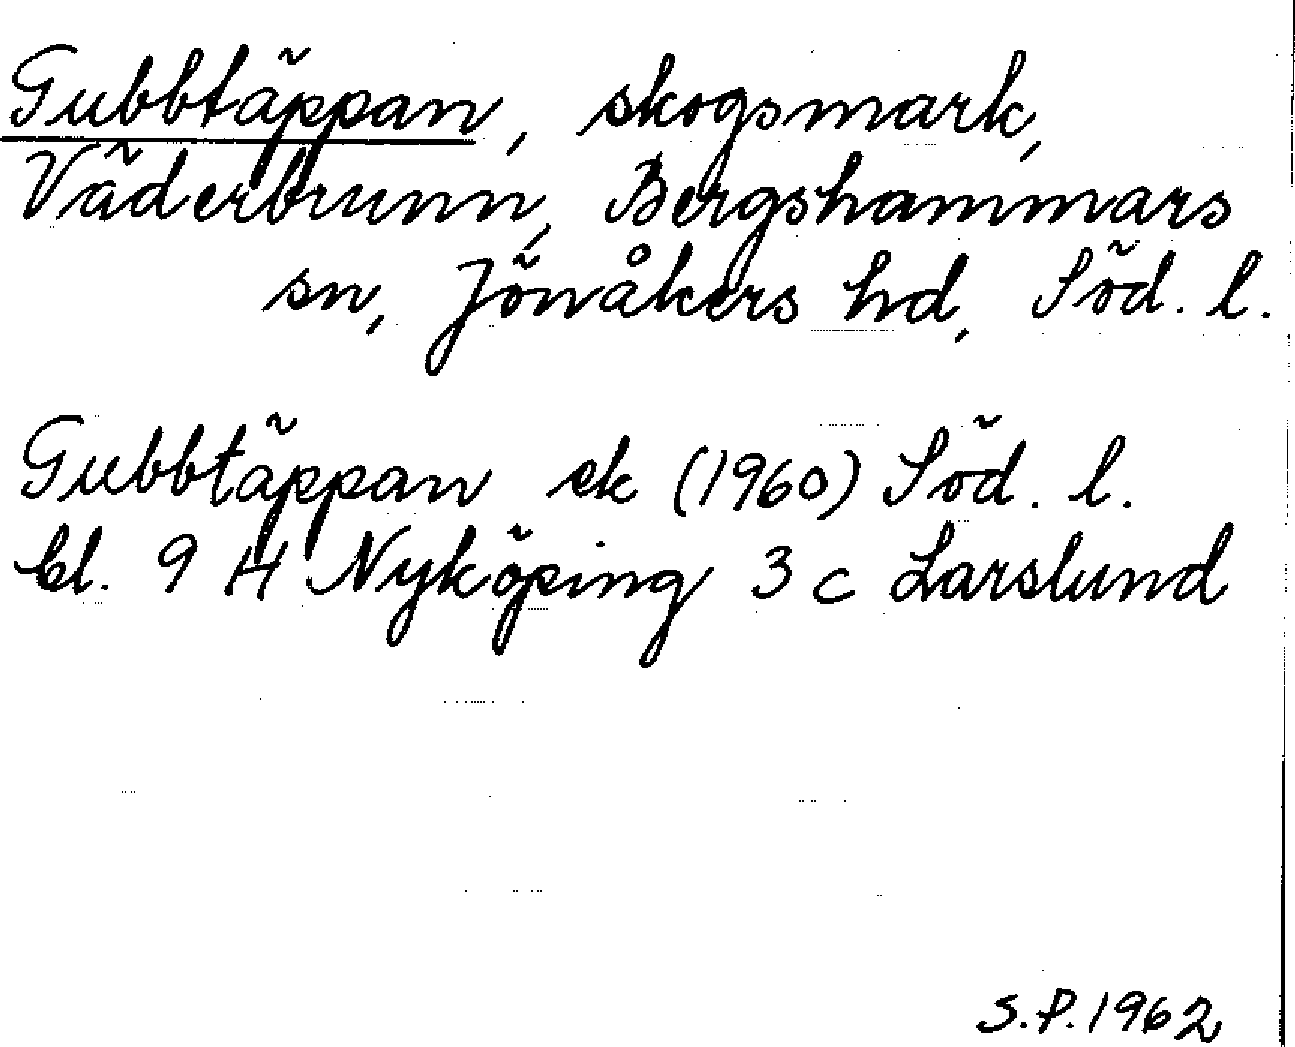 Gubbtäppan, skogsmark,
Väderbrunn, Bergshammars
sn, Jönåkers hd, Söd. l.
Gubbtäppan ek (1960) Söd. l.
bl. 9 H Nyköping 3 c Larslund
S.P. 1962